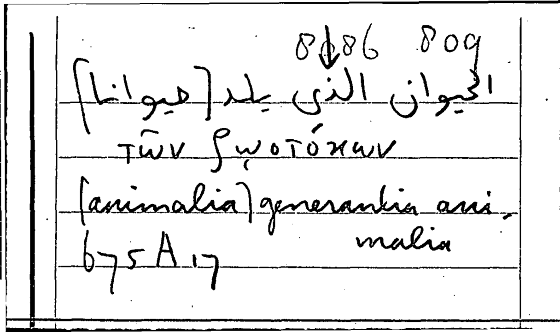 8686 809
الحيوان الذى يلد [حيوانا]
τῶν ζῳοτόκων
[animalia] generantia ani-
malia
675 A 17